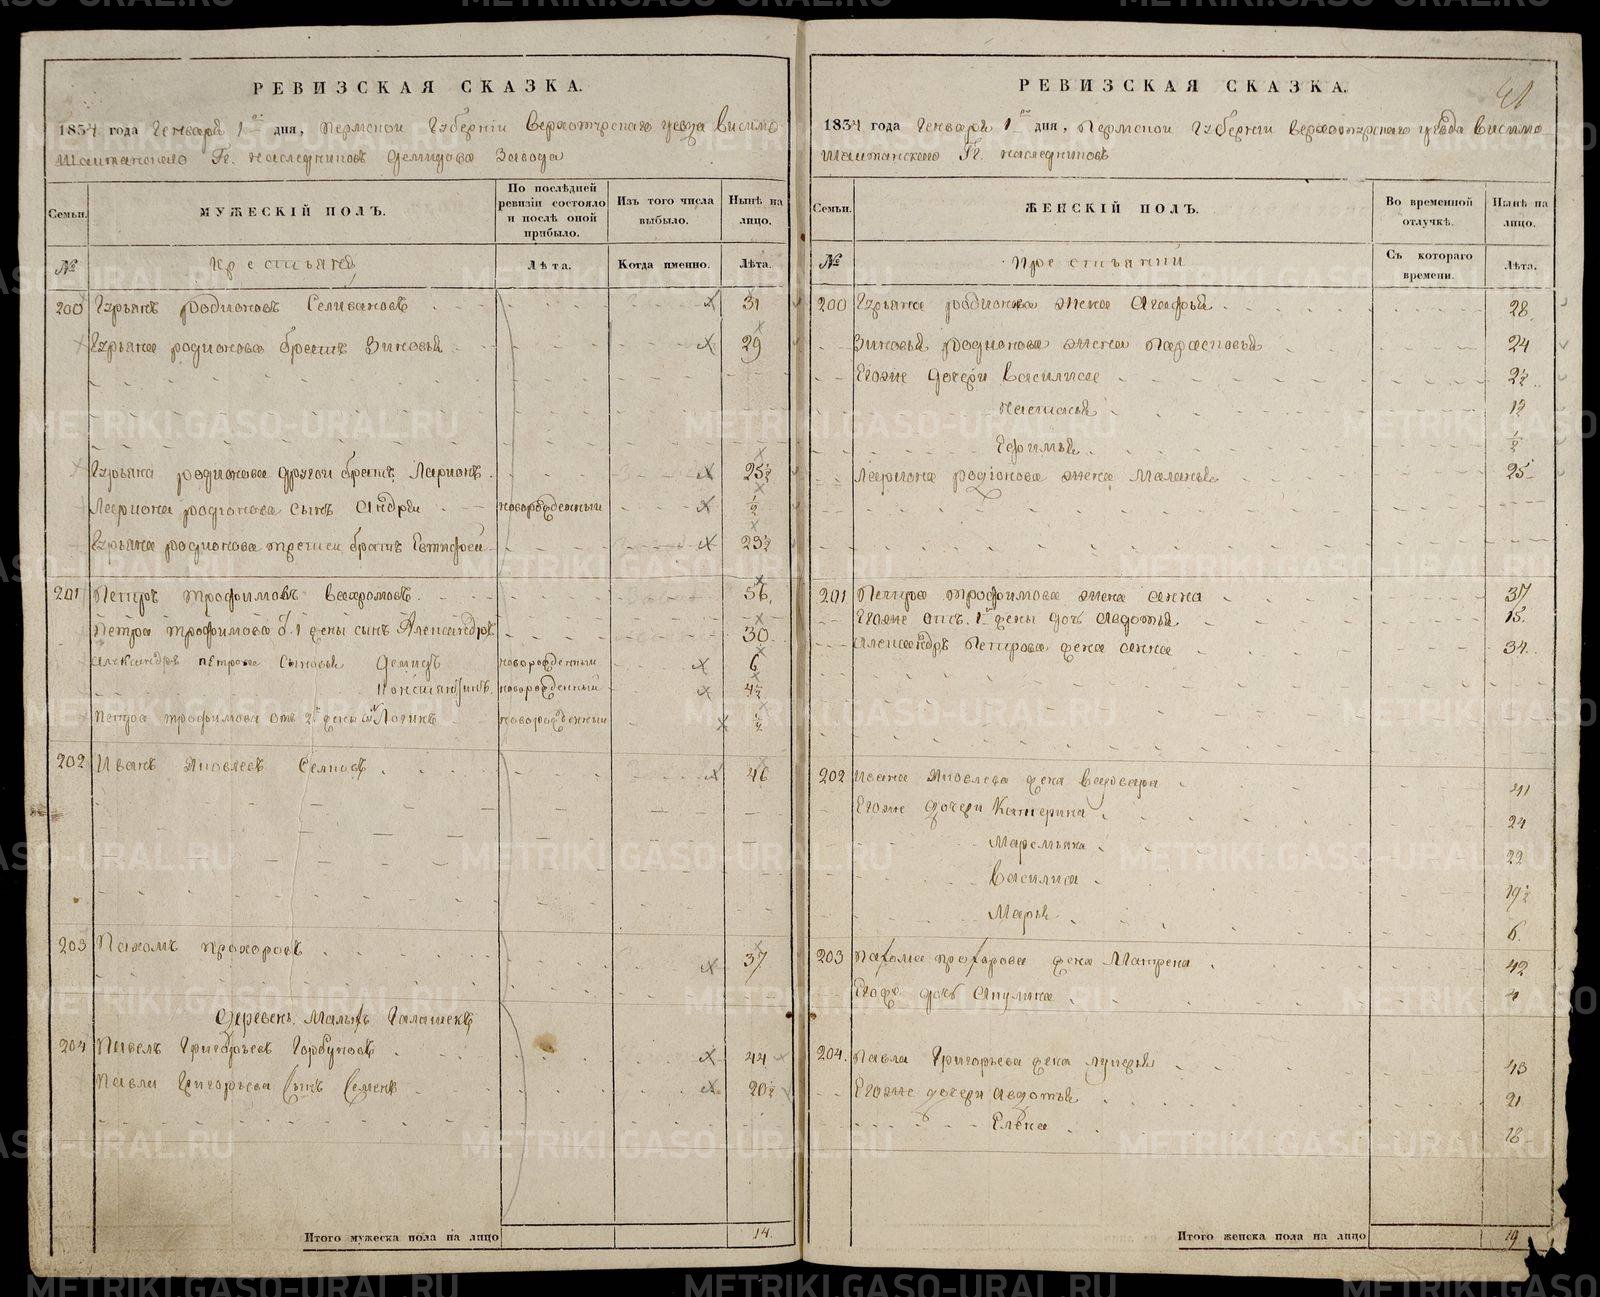 41
РЕВИЗСКАЯ СКАЗКА.
1834 года Генваря 1го дня, Пермской Губерніи Верхотурскаго уезда Висимо
Шайтанскаго Гг. наследниковъ Демидова Завода
Семьи.
МУЖЕСКІЙ ПОЛЪ.
По послѣдней ревизіи состояло и послѣ оной прибыло.
Изъ того числа выбыло.
Нынѣ на лицо.
№
Крестьяне
Лѣта.
Когда именно.
Лѣта.
200 Гурьянъ родионовъ Селивановъ 31
Гурьяна родионова братъ Зиновья 29
Гурьяна родионова другой братъ Ларионъ 25½
Лариона родионова сынъ Андрей новорожденный ½
Гурьяна родионова третей братъ Евтифей 23½
201 Петръ трофимовъ Вахромовъ 56
Петра трофимова о. 1 жены сынъ Александръ 30
Александра петрова Сыновья Демидъ новорожденный 6
Константинъ новорожденный 4½
Петра трофимова отъ 2й жены сынъ Логинъ новорожденный ½
202 Иванъ Яковлевъ 46
203 Пахомъ прохоровъ 37
Деревень Малыхъ Галашекъ
204 Павелъ Григорьевъ Горбуновъ 44
Павла Григорьева Сынъ Семенъ 20½
Итого мужеска пола на лицо 14.
РЕВИЗСКАЯ СКАЗКА.
1834 года Генваря 1го дня, Пермской Губерніи верхотурскаго уезда Висимо
Шайтанскаго Гг. наследниковъ
Семьи.
ЖЕНСКІЙ ПОЛЪ.
Во временной отлучкѣ.
Нынѣ на лицо.
№
Съ котораго времени.
Лѣта.
200 Гурьяна родионова жена Агафья 28
Зиновья родионова жена парасковья 24
Егоже дочери Василиса 2½
Настасья 1½
Ефимья ½
Лариона родіонова жена Маланья 25
201 Петра трофимова жена анна 37
Егоже отъ 1й жены дочь Авдотья 15.
Александра Петрова жена анна 34
202 Ивана Яковлева жена Варвара 41
Егоже дочери Катерина 24
Маремьяна 22
Василиса 19½
Марья 6.
203 Пахома прохорова жена Матрена 42
Егоже дочь Акулина 4
204. Павла Григорьева жена лукерья 43
Егоже дочери Авдотья 21
Елена 18
Итого женска пола на лицо 19
METRIKI.GASO-URAL.RU